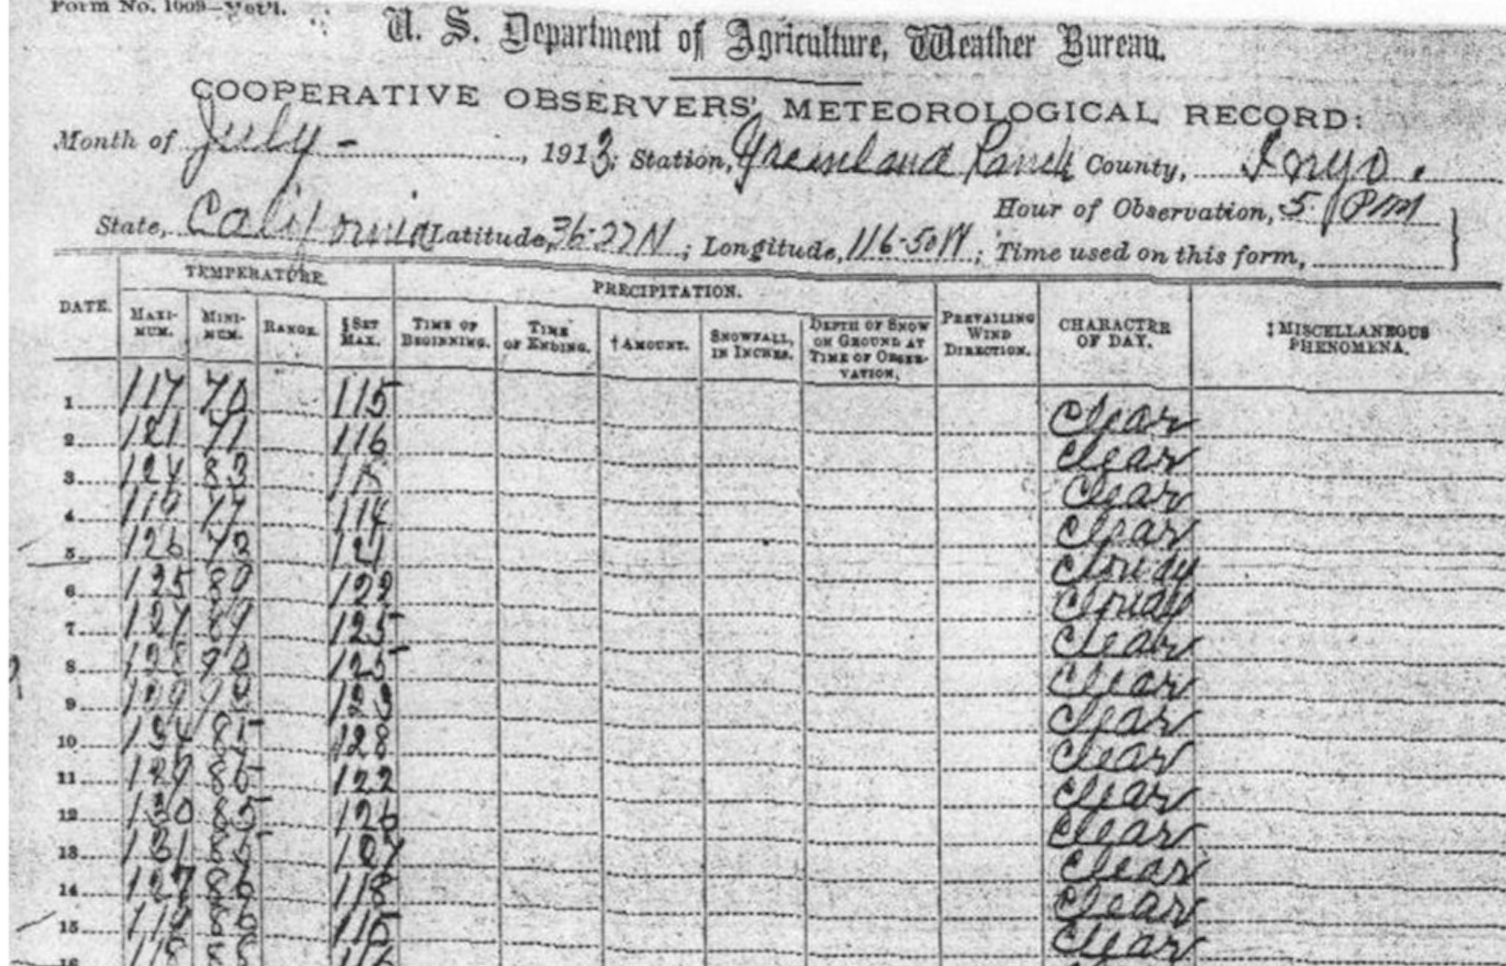 Form No. 1009—Met'l.
U. S. Department of Agriculture, Weather Bureau.
COOPERATIVE OBSERVERS' METEOROLOGICAL RECORD:
Month of July - , 1913; Station, Greenland Ranch County, Inyo.
Hour of Observation, 5 PM
State, California Latitude, 36-27N ; Longitude, 116-50W ; Time used on this form,
TEMPERATURE. PRECIPITATION.
DATE. MAXI-MUM. MINI-MUM. RANGE. §SET MAX. TIME OF BEGINNING. TIME OF ENDING. †AMOUNT. SNOWFALL, IN INCHES. DEPTH OF SNOW ON GROUND AT TIME OF OBSER-VATION. PREVAILING WIND DIRECTION. CHARACTER OF DAY. ‡MISCELLANEOUS PHENOMENA.
1 117 70 115 Clear
2 121 71 116 Clear
3 124 83 Clear
4 119 77 114 Clear
5 126 73 121 Cloudy
6 125 122 Cloudy
7 127 125 Clear
8 128 90 125 Clear
9 129 123 Clear
10 134 85 128 Clear
11 129 85 122 Clear
12 130 85 126 Clear
13 131 85 107 Clear
14 127 118 Clear
15 115 Clear
16